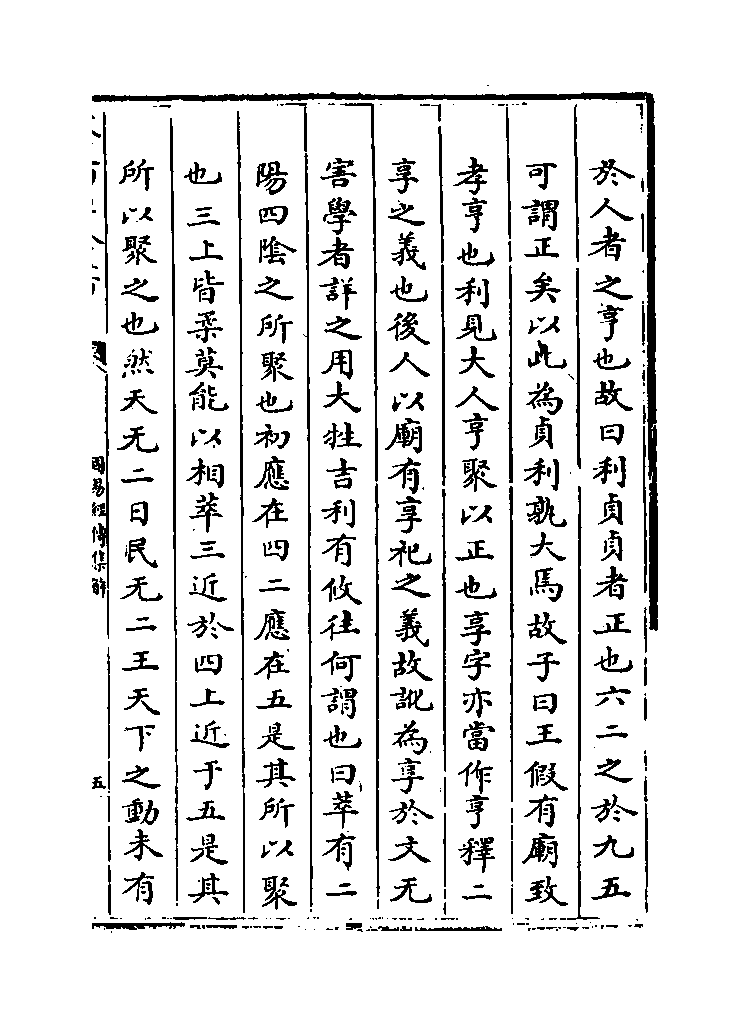 於人者之亨也故曰利貞貞者正也六二之於九五
可謂正矣以此為貞利孰大焉故子曰王假有廟致
孝亨也利見大人亨聚以正也享字亦當作亨釋二
享之義也後人以廟有享祀之義故訛為享於文无
害學者詳之用大牲吉利有攸往何謂也曰萃有二
陽四陰之所聚也初應在四二應在五是其所以聚
也三上皆柔莫能以相萃三近於四上近于五是其
所以聚之也然天无二日民无二王天下之動未有
周易經傳集解
五